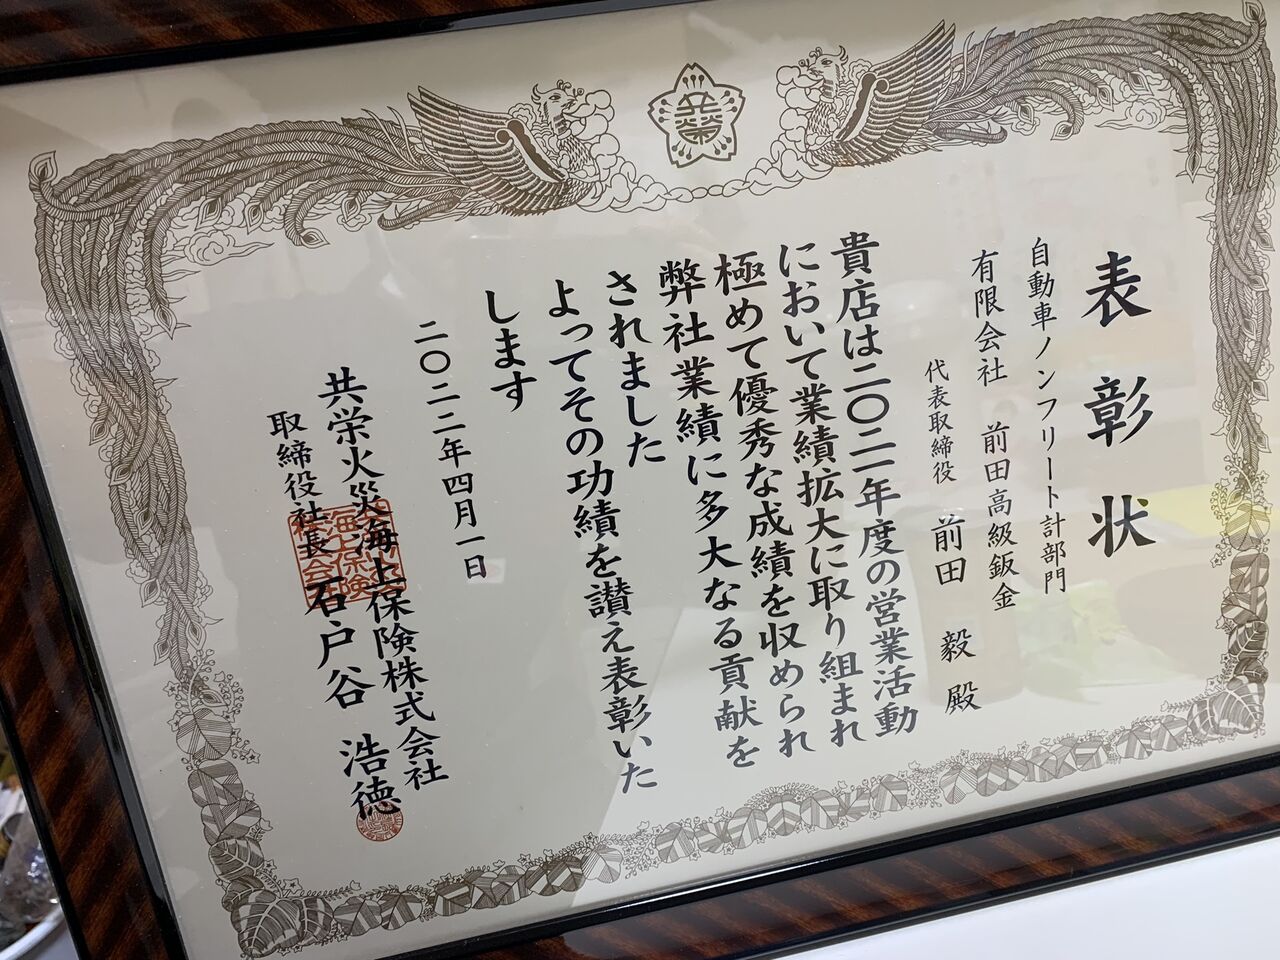 共栄
表彰状
自動車ノンフリート計部門
有限会社 前田高級鈑金
代表取締役 前田 毅 殿
貴店は二〇二一年度の営業活動
において業績拡大に取り組まれ
極めて優秀な成績を収められ
弊社業績に多大なる貢献を
されました
よってその功績を讃え表彰いた
します
二〇二二年四月一日
共栄火災海上保険株式会社
取締役社長 石戸谷 浩徳